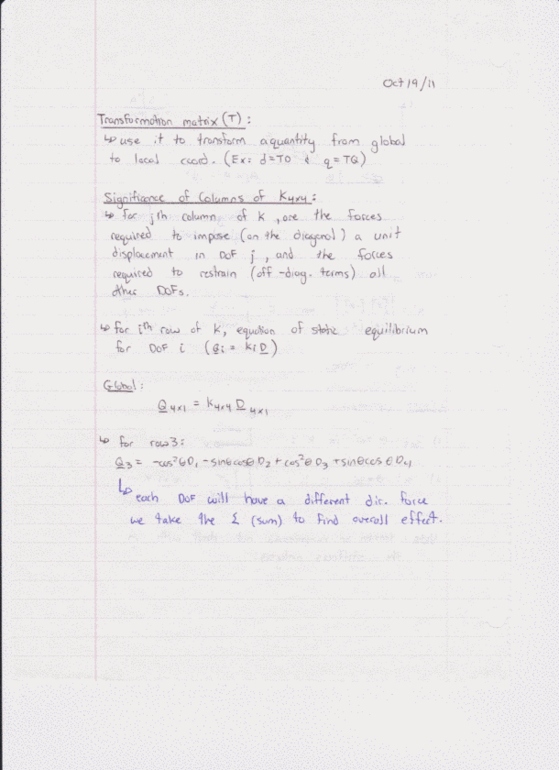 Oct 19/11
Transformation matrix (T):
↳ use it to transform a quantity from global
to local coord. (Ex: d=TD & q=TQ)
Significance of Columns of K4x4:
↳ for jth column of k, are the forces
required to impose (on the diagonal) a unit
displacement in DoF j, and the forces
required to restrain (off-diag. terms) all
other DoFs.
↳ for ith row of K, equation of static equilibrium
for DoF i (Qi = KiD)
Global:
Q4x1 = K4x4 D4x1
↳ for row3:
Q3 = -cos²θD1 - sinθcosθD2 + cos²θD3 + sinθcosθD4
↳ each DoF will have a different dir. force
we take the Σ (sum) to find overall effect.